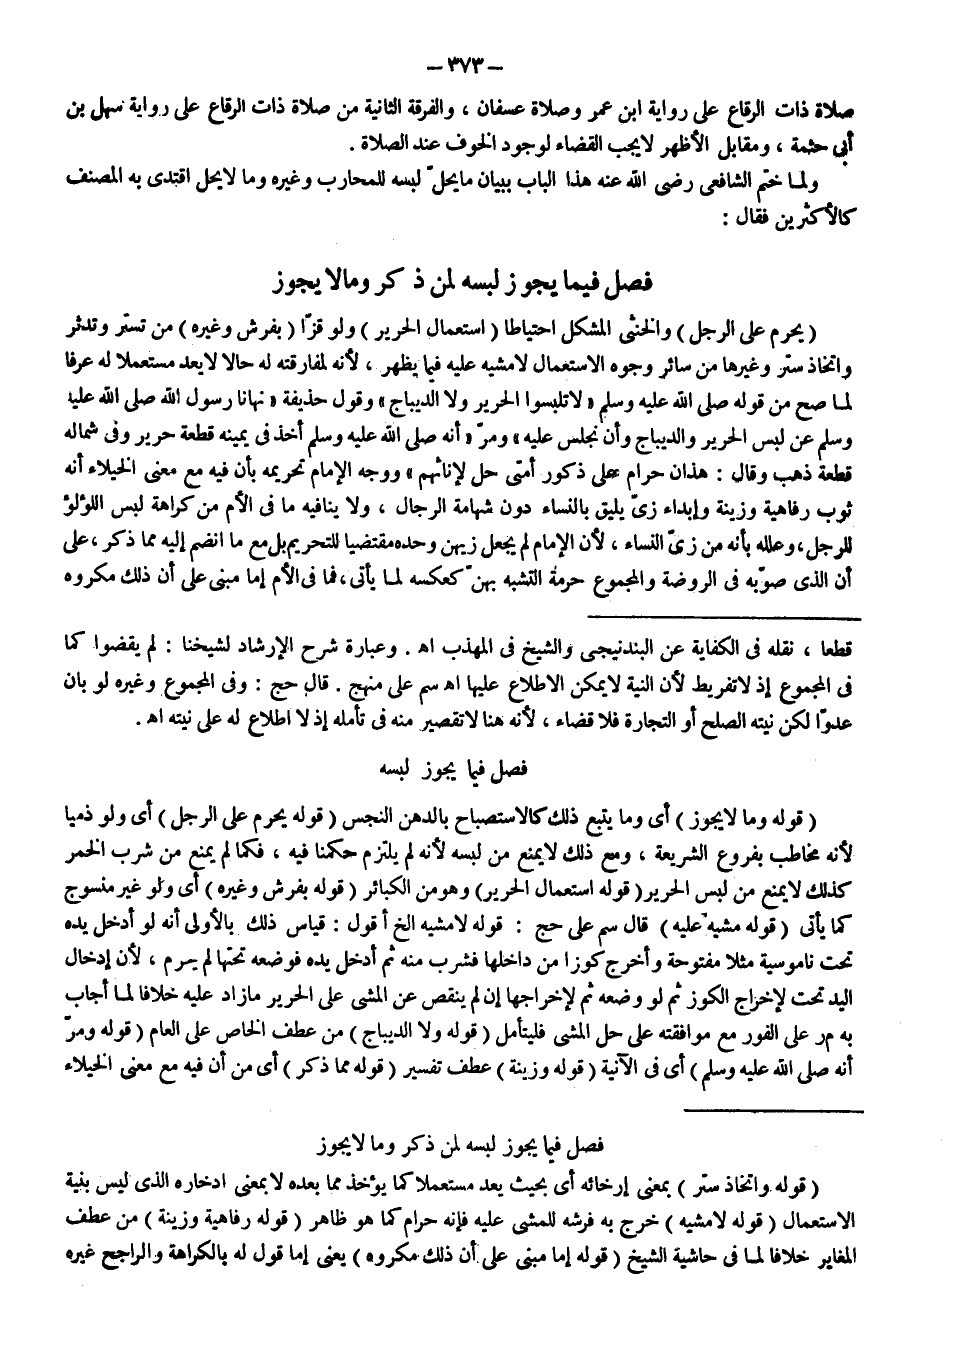 – ٣٧٣ –
صلاة ذات الرقاع على رواية ابن عمر وصلاة عسفان ، والفرقة الثانية من صلاة ذات الرقاع على رواية سهل بن
أبي حثمة ، ومقابل الأظهر لايجب القضاء لوجود الخوف عند الصلاة .
ولما ختم الشافعى رضى الله عنه هذا الباب ببيان مايحلّ لبسه للمحارب وغيره وما لايحل اقتدى به المصنف
كالأكثرين فقال :
فصل فيما يجوز لبسه لمن ذكر ومالا يجوز
( يحرم على الرجل ) والخنثى المشكل احتياطا ( استعمال الحرير ) ولو قزّا ( بفرش وغيره ) من تستّر وتدثر
واتخاذ ستر وغيرها من سائر وجوه الاستعمال لامشيه عليه فيما يظهر ، لأنه لمفارقته له حالا لايعد مستعملا له عرفا
لما صح من قوله صلى الله عليه وسلم « لاتلبسوا الحرير ولا الديباج » وقول حذيفة « نهانا رسول الله صلى الله عليه
وسلم عن لبس الحرير والديباج وأن نجلس عليه » ومرّ « أنه صلى الله عليه وسلم أخذ فى يمينه قطعة حرير وفى شماله
قطعة ذهب وقال : هذان حرام على ذكور أمتى حل لإناثهم » ووجه الإمام تحريمه بأن فيه مع معنى الخيلاء أنه
ثوب رفاهية وزينة وإبداء زىّ يليق بالنساء دون شهامة الرجال ، ولا ينافيه ما فى الأم من كراهة لبس اللؤلؤ
للرجل ، وعلله بأنه من زىّ النساء ، لأن الإمام لم يجعل زيهن وحده مقتضيا للتحريم بل مع ما انضم إليه مما ذكر ، على
أن الذى صوّبه فى الروضة والمجموع حرمة التشبه بهنّ كعكسه لما يأتى ، فما فى الأم إما مبنى على أن ذلك مكروه
قطعا ، نقله فى الكفاية عن البندنيجى والشيخ فى المهذب اه . وعبارة شرح الإرشاد لشيخنا : لم يقضوا كما
فى المجموع إذ لاتفريط لأن النية لايمكن الاطلاع عليها اه سم على منهج . قال حج : وفى المجموع وغيره لو بان
عدوّا لكن نيته الصلح أو التجارة فلا قضاء ، لأنه هنا لاتقصير منه فى تأمله إذ لا اطلاع له على نيته اه .
فصل فيما يجوز لبسه
( قوله وما لايجوز ) أى وما يتبع ذلك كالاستصباح بالدهن النجس ( قوله يحرم على الرجل ) أى ولو ذميا
لأنه مخاطب بفروع الشريعة ، ومع ذلك لايمنع من لبسه لأنه لم يلتزم حكمنا فيه ، فكما لم يمنع من شرب الخمر
كذلك لايمنع من لبس الحرير ( قوله استعمال الحرير ) وهو من الكبائر ( قوله بفرش وغيره ) أى ولو غير منسوج
كما يأتى ( قوله مشيه عليه ) قال سم على حج : قوله لامشيه الخ أقول : قياس ذلك بالأولى أنه لو أدخل يده
تحت ناموسية مثلا مفتوحة وأخرج كوزا من داخلها فشرب منه ثم أدخل يده فوضعه تحتها لم يحرم ، لأن إدخال
اليد تحت لإخراج الكوز ثم لو وضعه ثم لإخراجها إن لم ينقص عن المشى على الحرير مازاد عليه خلافا لما أجاب
به مر على الفور مع موافقته على حل المشى فليتأمل ( قوله ولا الديباج ) من عطف الخاص على العام ( قوله ومرّ
أنه صلى الله عليه وسلم ) أى فى الآنية ( قوله وزينة ) عطف تفسير ( قوله مما ذكر ) أى من أن فيه مع معنى الخيلاء
فصل فيما يجوز لبسه لمن ذكر وما لايجوز
( قوله واتخاذ ستر ) بمعنى إرخائه أى بحيث يعد مستعملا كما يؤخذ مما بعده لابمعنى ادخاره الذى ليس بنية
الاستعمال ( قوله لامشيه ) خرج به فرشه للمشى عليه فإنه حرام كما هو ظاهر ( قوله رفاهية وزينة ) من عطف
المغاير خلافا لما فى حاشية الشيخ ( قوله إما مبنى على أن ذلك مكروه ) يعنى إما قول له بالكراهة والراجح غيره